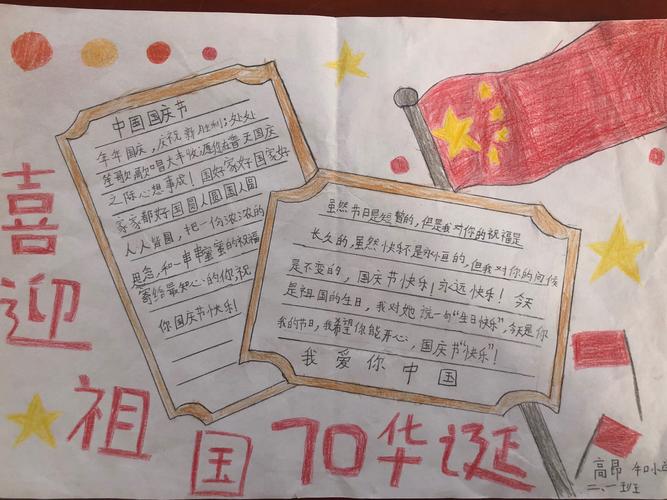 中国国庆节
年年国庆，庆祝新胜利；处处
笙歌歌唱大丰收愿你在普天国庆
之际心想事成！国好家好国家好
家家都好国圆人圆国人圆
人人皆圆，把一份浓浓的
思念，和一串串蜜蜜的祝福
寄给最知心的你，祝
你国庆节快乐！
虽然节日是短暂的，但是我对你的祝福是
长久的，虽然快乐是永恒的，但我对你的问候
是不变的，国庆节快乐！永远快乐！今天
是祖国的生日，我对她说一句“生日快乐”，今天是你
我的节日，我希望你能开心，国庆节“快乐”！
我爱你中国
喜迎
祖国70华诞
高昂
二、一班